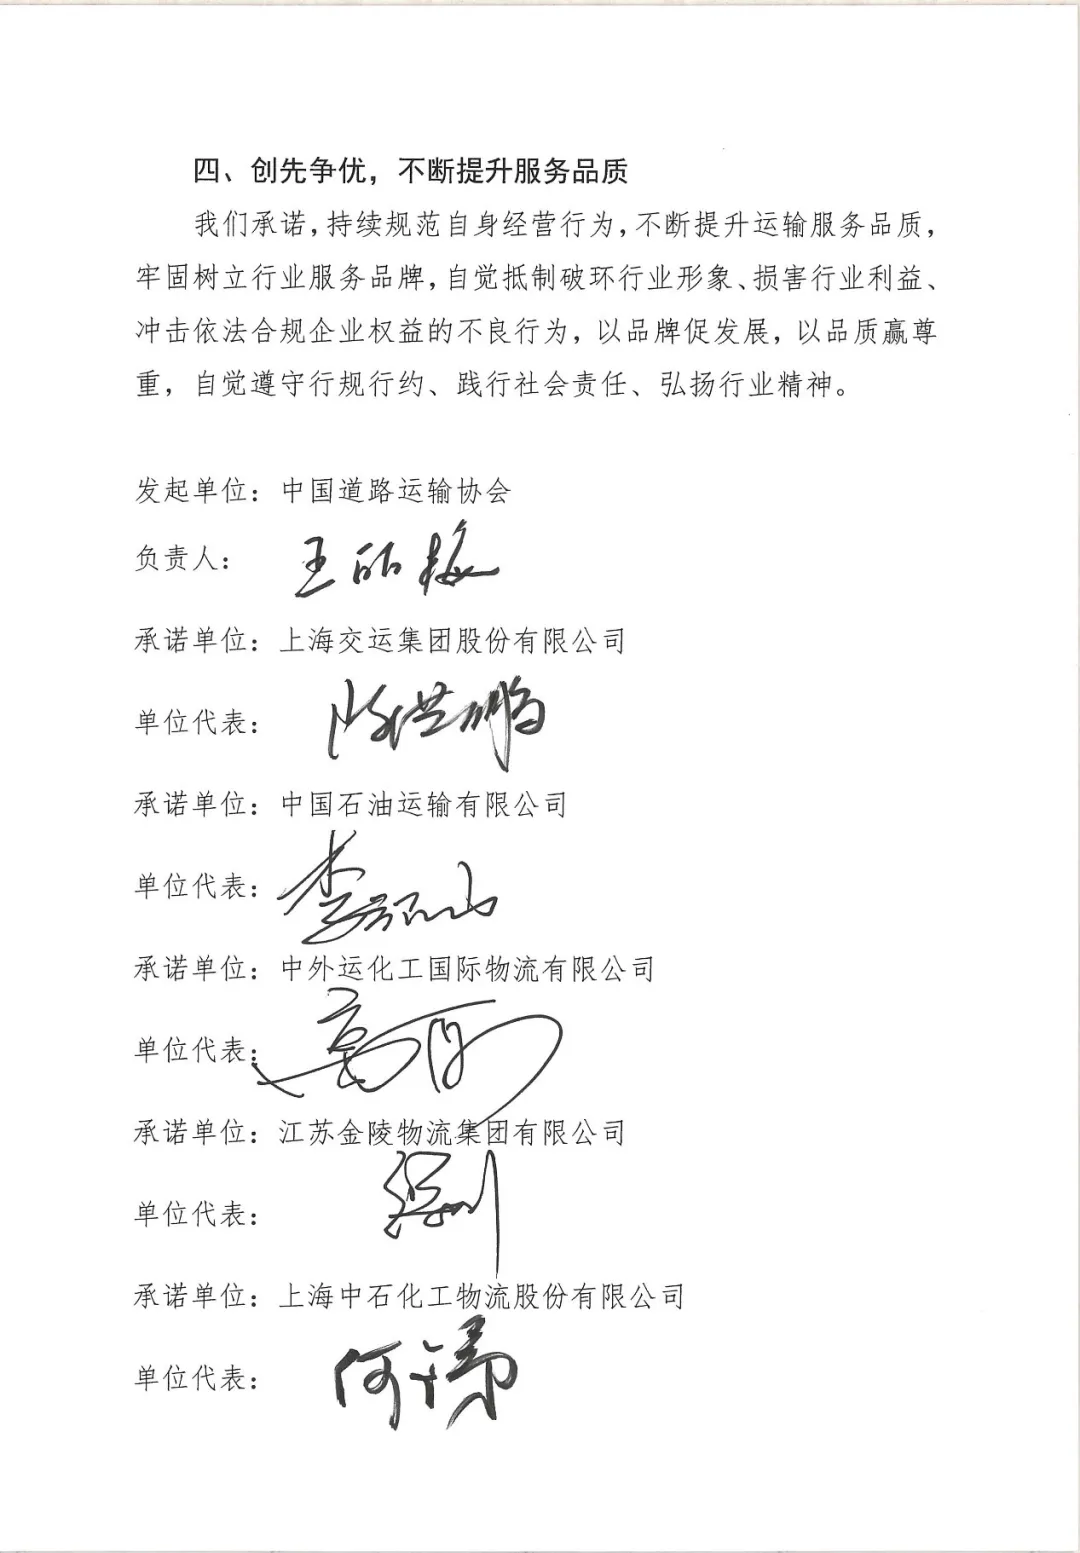 四、创先争优，不断提升服务品质
我们承诺，持续规范自身经营行为，不断提升运输服务品质，
牢固树立行业服务品牌，自觉抵制破环行业形象、损害行业利益、
冲击依法合规企业权益的不良行为，以品牌促发展，以品质赢尊
重，自觉遵守行规行约、践行社会责任、弘扬行业精神。
发起单位：中国道路运输协会
负责人：王丽梅
承诺单位：上海交运集团股份有限公司
单位代表：陈洪鹏
承诺单位：中国石油运输有限公司
单位代表：
承诺单位：中外运化工国际物流有限公司
单位代表：
承诺单位：江苏金陵物流集团有限公司
单位代表：
承诺单位：上海中石化工物流股份有限公司
单位代表：